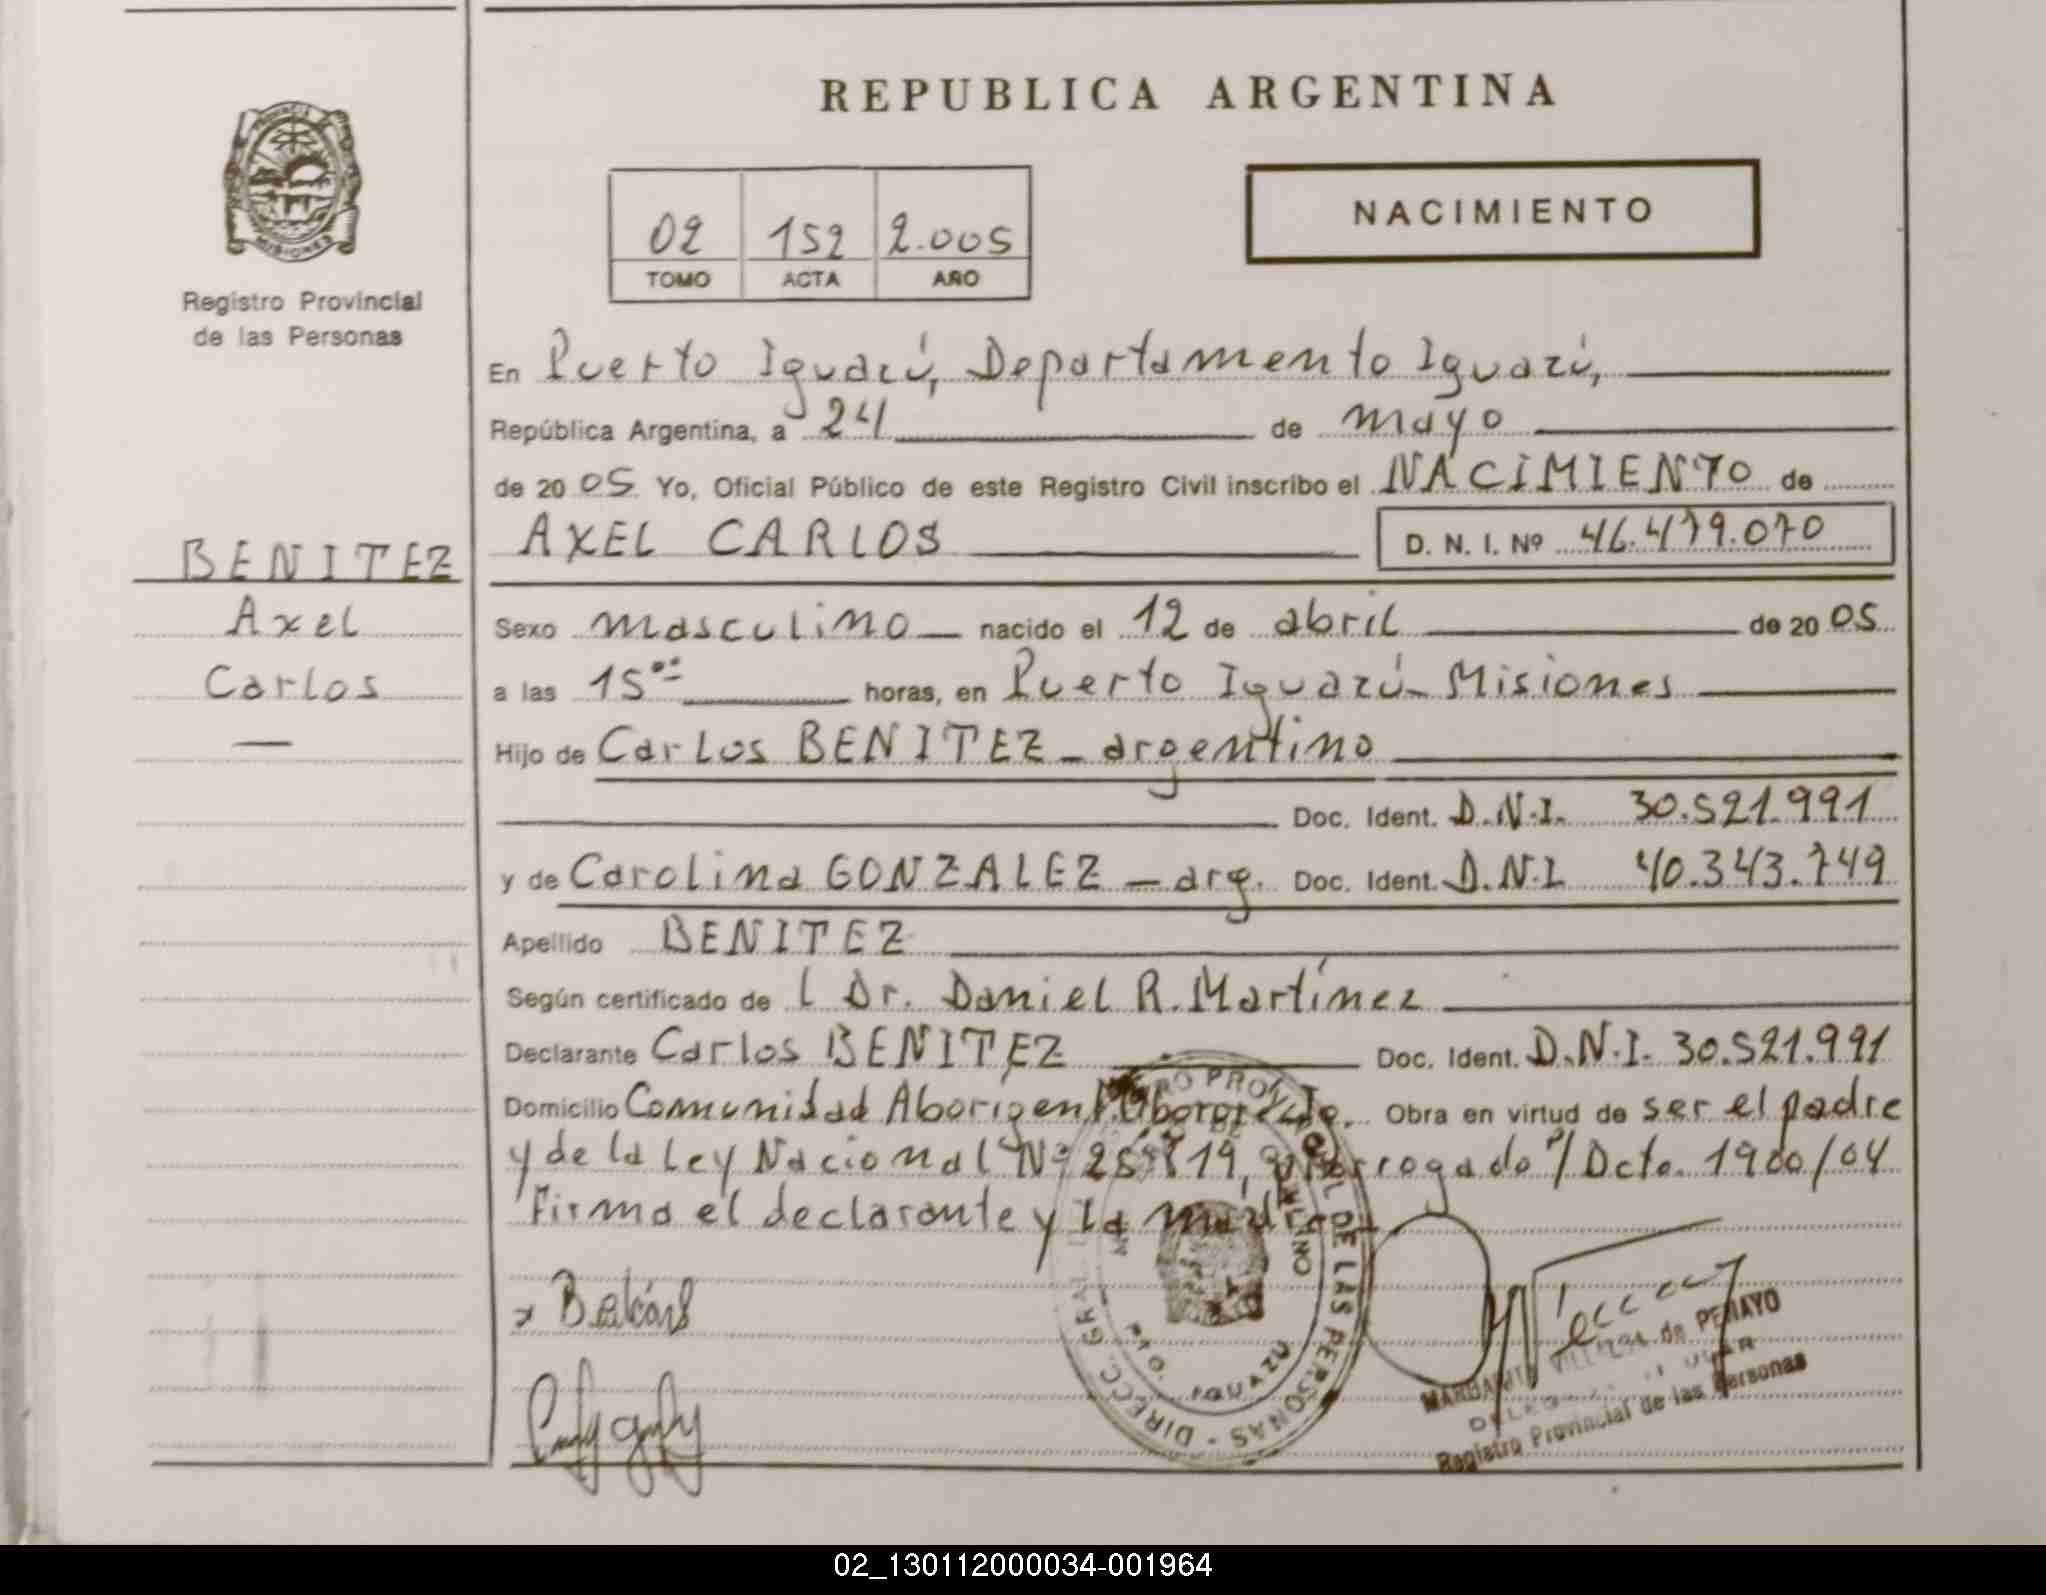 REPUBLICA ARGENTINA
PROVINCIA DE
MISIONES
Registro Provincial
de las Personas
02 152 2.005
TOMO ACTA AÑO
NACIMIENTO
En Puerto Iguazú, Departamento Iguazú,
República Argentina, a 24 de mayo
de 20 05 Yo, Oficial Público de este Registro Civil inscribo el NACIMIENTO de
BENITEZ
Axel
Carlos
AXEL CARLOS D. N. I. Nº 46.479.070
Sexo masculino nacido el 12 de abril de 20 05
a las 15 horas, en Puerto Iguazú - Misiones
Hijo de Carlos BENITEZ - argentino
Doc. Ident. D.N.I. 30.521.991
y de Carolina GONZALEZ - arg. Doc. Ident. D.N.I. 40.343.749
Apellido BENITEZ
Según certificado de l Dr. Daniel R. Martínez
Declarante Carlos BENITEZ Doc. Ident. D.N.I. 30.521.991
Domicilio Comunidad Aborigen Obra en virtud de ser el padre
y de la Ley Nacional Nº p/ Dcto. 1900/04
Firma el declarante y la madre
DIRECC. GRAL. DE LAS PERSONAS
DPTO. IGUAZU
de PENAYO
Registro Provincial de las Personas
02_130112000034-001964